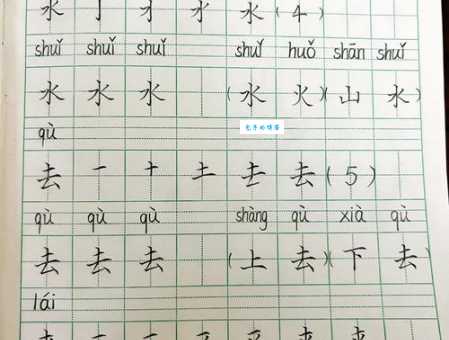 水 亅 水 (4)
shuǐ shuǐ shuǐ shuǐ huǒ shān shuǐ
水 水 水 (水 火)(山 水)
qù
去 一 十 土 去 去 (5)
qù qù qù shàng qù xià qù
去 去 去 (上 去)(下 去)
lái